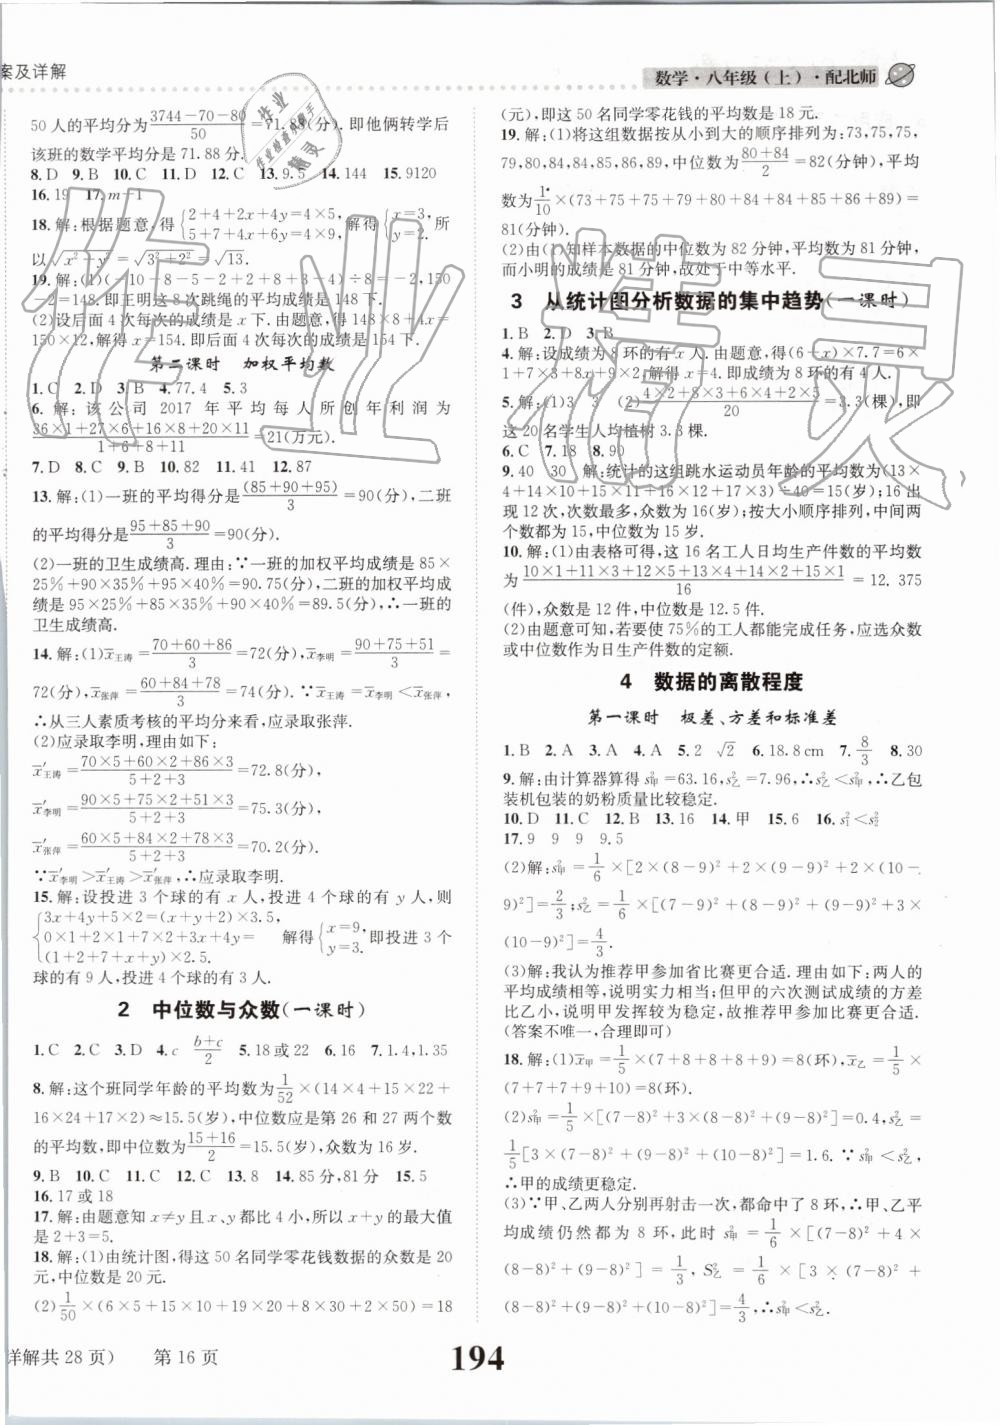 案及详解
数学·八年级(上)·配北师
50人的平均分为(3744-70-80)/50=71.88(分).即他俩转学后
该班的数学平均分是71.88分.
8.D 9.B 10.C 11.D 12.C 13.9.5 14.144 15.9120
16.19 17.m-1
18.解:根据题意,得{2+4+2x+4y=4×5, 5+7+4x+6y=4×9, 解得{x=3, y=2. 所
以√(x²+y²)=√(3²+2²)=√13.
19.解:(1)(-10+8-5-2+2+8+3-4)÷8=-2,150
-2=148,即王明这8次跳绳的平均成绩是148下.
(2)设后面4次每次的成绩是x下.由题意,得148×8+4x=
150×12,解得x=154.即后面4次每次的成绩是154下.
第二课时 加权平均数
1.C 2.D 3.B 4.77.4 5.3
6.解:该公司2017年平均每人所创年利润为
(36×1+27×6+16×8+20×11)/(1+6+8+11)=21(万元).
7.D 8.C 9.B 10.82 11.42 12.87
13.解:(1)一班的平均得分是(85+90+95)/3=90(分),二班
的平均得分是(95+85+90)/3=90(分).
(2)一班的卫生成绩高.理由:∵一班的加权平均成绩是85×
25%+90×35%+95×40%=90.75(分),二班的加权平均成
绩是95×25%+85×35%+90×40%=89.5(分),∴一班的
卫生成绩高.
14.解:(1)x̄王涛=(70+60+86)/3=72(分),x̄李明=(90+75+51)/3=
72(分),x̄张萍=(60+84+78)/3=74(分).∵x̄王涛=x̄李明<x̄张萍,
∴从三人素质考核的平均分来看,应录取张萍.
(2)应录取李明,理由如下:
x̄′王涛=(70×5+60×2+86×3)/(5+2+3)=72.8(分),
x̄′李明=(90×5+75×2+51×3)/(5+2+3)=75.3(分),
x̄′张萍=(60×5+84×2+78×3)/(5+2+3)=70.2(分).
∵x̄′李明>x̄′王涛>x̄′张萍,∴应录取李明.
15.解:设投进3个球的有x人,投进4个球的有y人,则
{3x+4y+5×2=(x+y+2)×3.5,
0×1+2×1+7×2+3x+4y= 解得{x=9, y=3. 即投进3个
(1+2+7+x+y+2)×2.5.
球的有9人,投进4个球的有3人.
2 中位数与众数(一课时)
1.C 2.C 3.D 4.c (b+c)/2 5.18或22 6.16 7.1.4,1.35
8.解:这个班同学年龄的平均数为1/52×(14×4+15×22+
16×24+17×2)≈15.5(岁),中位数应是第26和27两个数
的平均数,即中位数为(15+16)/2=15.5(岁),众数为16岁.
9.B 10.C 11.C 12.D 13.8 14.85分,81分 15.5
16.17或18
17.解:由题意知x≠y且x、y都比4小,所以x+y的最大值
是2+3=5.
18.解:(1)由统计图,得这50名同学零花钱数据的众数是20
元,中位数是20元.
(2)1/50×(6×5+15×10+19×20+8×30+2×50)=18
(元),即这50名同学零花钱的平均数是18元.
19.解:(1)将这组数据按从小到大的顺序排列为:73,75,75,
79,80,84,86,88,89,92,中位数为(80+84)/2=82(分钟),平均
数为1/10×(73+75+75+79+80+84+86+88+89+92)=
81(分钟).
(2)由(1)知样本数据的中位数为82分钟,平均数为81分钟,
而小明的成绩是81分钟,故处于中等水平.
3 从统计图分析数据的集中趋势(一课时)
1.B 2.D 3.B
4.解:设成绩为8环的有x人.由题意,得(6+x)×7.7=6×
1+7×3+9×2+8x.解得x=4.即成绩为8环的有4人.
5.解:(1)3 3 (2)(4×2+8×3+6×4+2×5)/20=3.3(棵),即
这20名学生人均植树3.3棵.
6.C 7.18 8.90
9.40 30 解:统计的这组跳水运动员年龄的平均数为(13×
4+14×10+15×11+16×12+17×3)÷40=15(岁);16出
现12次,次数最多,众数为16(岁);按大小顺序排列,中间两
个数都为15,中位数为15岁.
10.解:(1)由表格可得,这16名工人日均生产件数的平均数
为(10×1+11×3+12×4+13×4+14×3+15×1)/16=12.375
(件),众数是12件,中位数是12.5件.
(2)由题意可知,若要使75%的工人都能完成任务,应选众数
或中位数作为日生产件数的定额.
4 数据的离散程度
第一课时 极差、方差和标准差
1.B 2.A 3.A 4.A 5.2 √2 6.18.8 cm 7.8/3 8.30
9.解:由计算器算得s²甲=63.16,s²乙=7.96,∴s²乙<s²甲,∴乙包
装机包装的奶粉质量比较稳定.
10.D 11.C 12.B 13.16 14.甲 15.6 16.s²₁<s²₂
17.9 9 9 9.5
(2)解:s²甲=1/6×[2×(8-9)²+2×(9-9)²+2×(10-
9)²]=2/3;s²乙=1/6×[(7-9)²+(8-9)²+(9-9)²+3×
(10-9)²]=4/3.
(3)解:我认为推荐甲参加省比赛更合适.理由如下:两人的
平均成绩相等,说明实力相当;但甲的六次测试成绩的方差
比乙小,说明甲发挥较为稳定,故推荐甲参加比赛更合适.
(答案不唯一,合理即可)
18.解:(1)x̄甲=1/5×(7+8+8+8+9)=8(环),x̄乙=1/5×
(7+7+7+9+10)=8(环).
(2)s²甲=1/5×[(7-8)²+3×(8-8)²+(9-8)²]=0.4,s²乙=
1/5[3×(7-8)²+(9-8)²+(10-8)²]=1.6.∵s²甲<s²乙,
∴甲的成绩更稳定.
(3)∵甲、乙两人分别再射击一次,都命中了8环,∴甲、乙平
均成绩仍然都为8环,此时s²甲=1/6×[(7-8)²+4×
(8-8)²+(9-8)²]=1/3,S²乙=1/6×[3×(7-8)²+
(8-8)²+(9-8)²+(10-8)²]=4/3,∴s²甲<s²乙.
详解共28页) 第16页
194
作业精灵